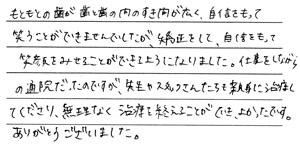 もともとの歯が歯と歯の間のすき間が広く、自信をもって
笑うことができませんでしたが、矯正をして、自信をもって
笑顔をみせることができるようになりました。仕事をしながら
の通院だったのですが、先生やスタッフさんたちも親身に治療し
てくださり、無理なく治療を終えることができ、よかったです。
ありがとうございました。